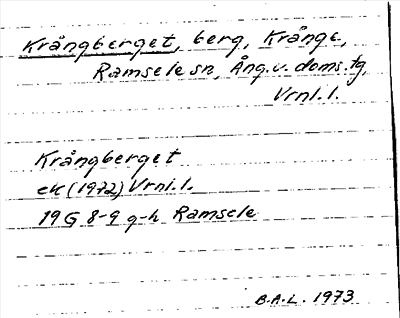 Krångberget, berg, Krånge,
Ramsele sn, Ång.v. doms.fg,
Vrnl.l.
Krångberget
ek (1972) Vrnl.l.
19G 8-9 g-h Ramsele
B.A.L. 1973